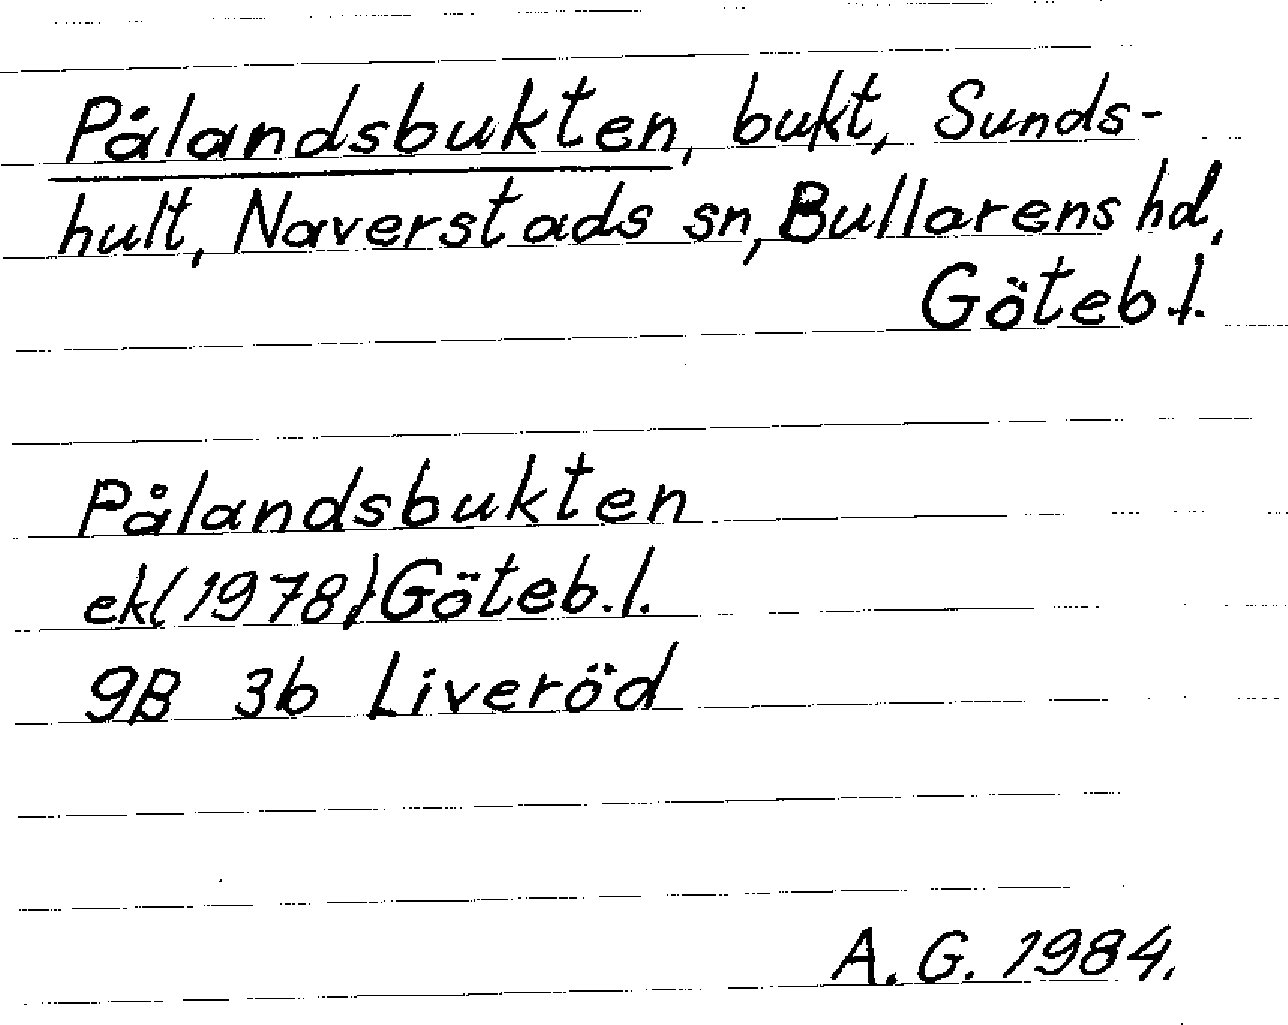 Pålandsbukten, bukt, Sunds-
hult, Naverstads sn, Bullarens hd,
Göteb.l.
Pålandsbukten
ek(1978) Göteb.l.
9B 3b Liveröd
A.G. 1984.